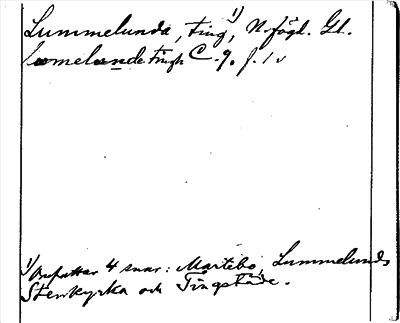 Lummelunda, ting, 1) N. fögd. Gl.
lomelunde tingh C. 9. f. 1 v
1) Omfattar 4 snar: Martebo, Lummelunds,
Stenkyrka och Tingstäde.